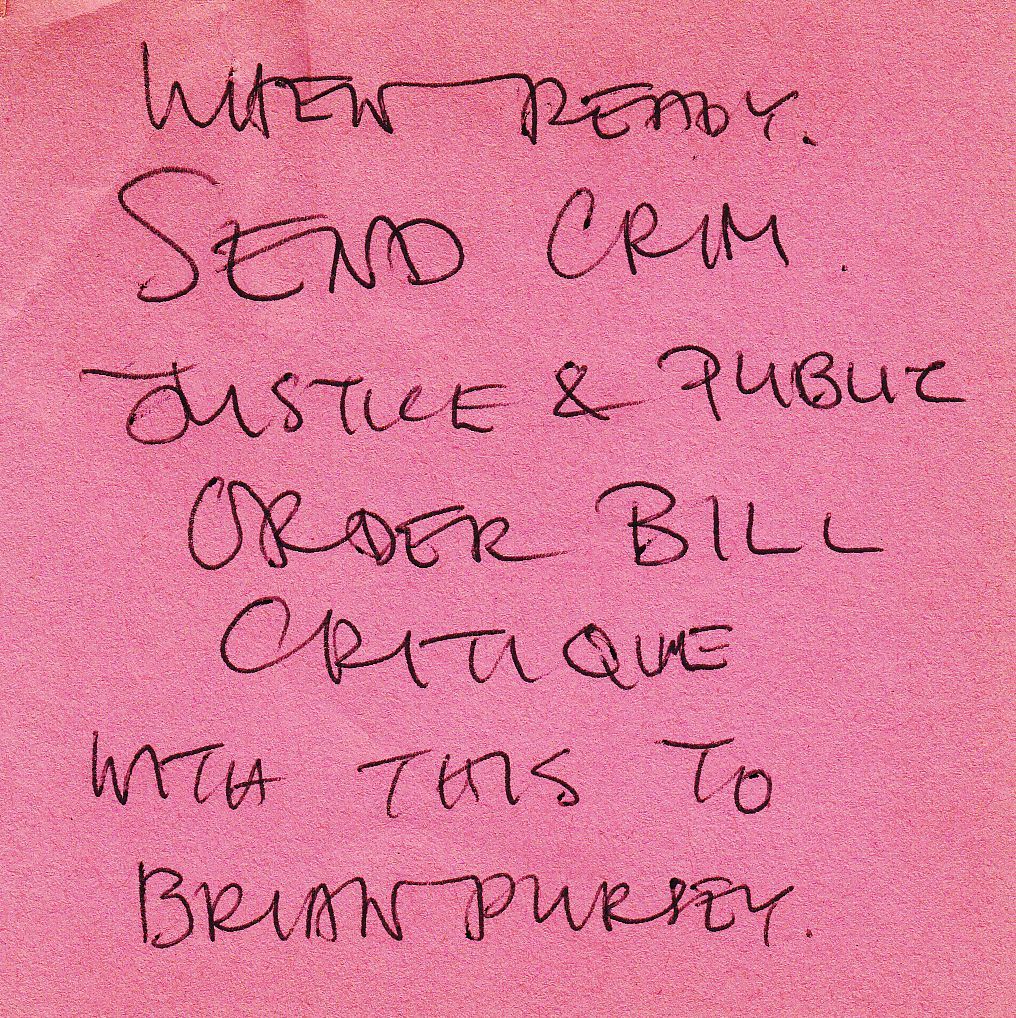 WHEN READY.
SEND CRIM.
JUSTICE & PUBLIC
ORDER BILL
CRITIQUE
WITH THIS TO
BRIAN PURSEY.